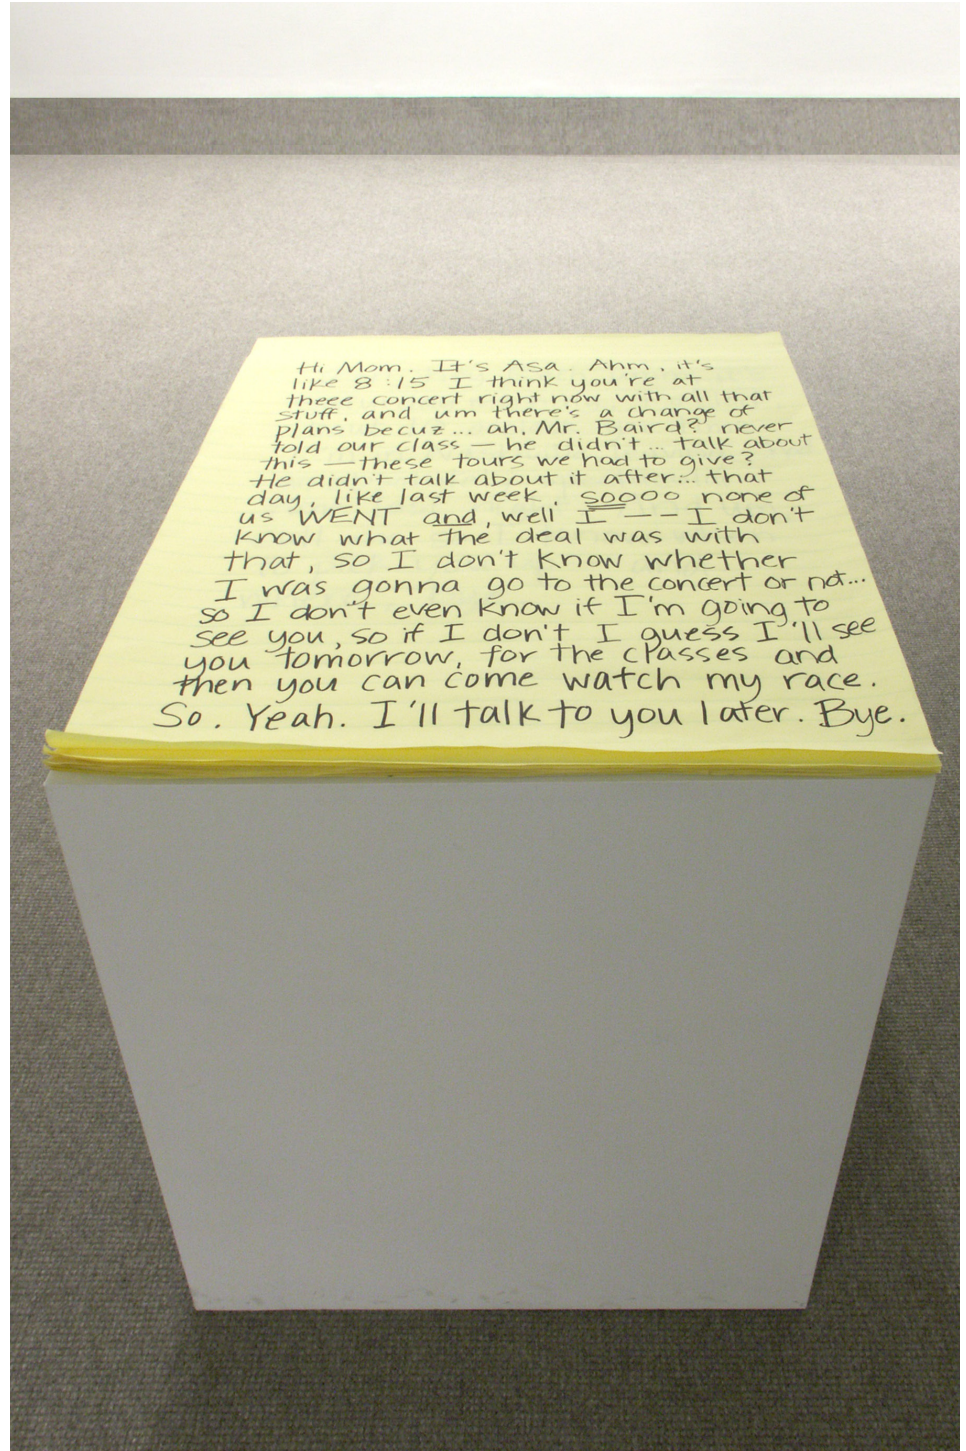 Hi Mom. It's Asa. Ahm, it's
like 8:15 I think you're at
theee concert right now with all that
stuff, and um there's a change of
plans becuz... ah, Mr. Baird? never
told our class — he didn't... talk about
this — these tours we had to give?
He didn't talk about it after... that
day, like last week, soooo none of
us WENT and, well I -- I don't
know what the deal was with
that, so I don't know whether
I was gonna go to the concert or not...
so I don't even know if I'm going to
see you, so if I don't I guess I'll see
you tomorrow, for the classes and
then you can come watch my race.
So. Yeah. I'll talk to you later. Bye.